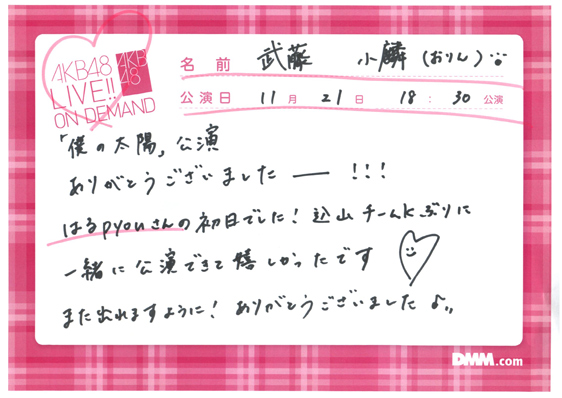 AKB48
LIVE!!
ON DEMAND
AKB
48
名前 武藤 小麟(おりん)
公演日 11月 21日 18:30 公演
「僕の太陽」公演
ありがとうございましたー!!!
はるpyonさんの初日でした!込山チームKぶりに
一緒に公演できて嬉しかったです
また出れますように!ありがとうございました♪
DMM.com